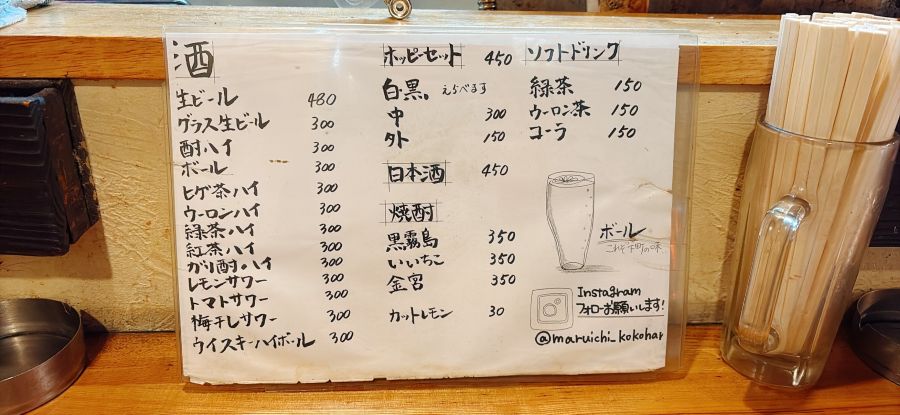 酒
生ビール 480
グラス生ビール 300
酎ハイ 300
ボール 300
ヒゲ茶ハイ 300
ウーロンハイ 300
緑茶ハイ 300
紅茶ハイ 300
ガリ酎ハイ 300
レモンサワー 300
トマトサワー 300
梅干しサワー 300
ウイスキーハイボール 300
ホッピーセット 450
白・黒、えらべるす
中 300
外 150
日本酒 450
焼酎
黒霧島 350
いいちこ 350
金宮 350
カットレモン 30
ソフトドリンク
緑茶 150
ウーロン茶 150
コーラ 150
ボール
これぞ下町の味
Instagram
フォローお願いします!
@maruichi_kokohar